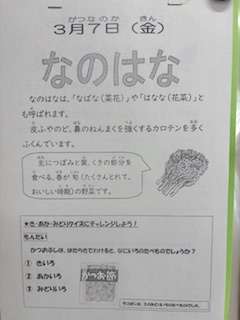 がつなのか きん
3月7日（金）
なのはな
なのはなは、「なばな（菜花）」や「はなな（花菜）」と
も呼ばれます。
皮ふやのど、鼻のねんまくを強くするカロテンを多く
ふくんでいます。
主につぼみと葉、くきの部分を
食べる、春が旬（たくさんとれて、
おいしい時期）の野菜です。
★き・あか・みどりクイズにチャレンジしよう！
もんだい
かつおぶしは、はたらきでわけると、なにいろのたべものでしょうか？
① きいろ
② あかいろ
③ みどりいろ
かつお節